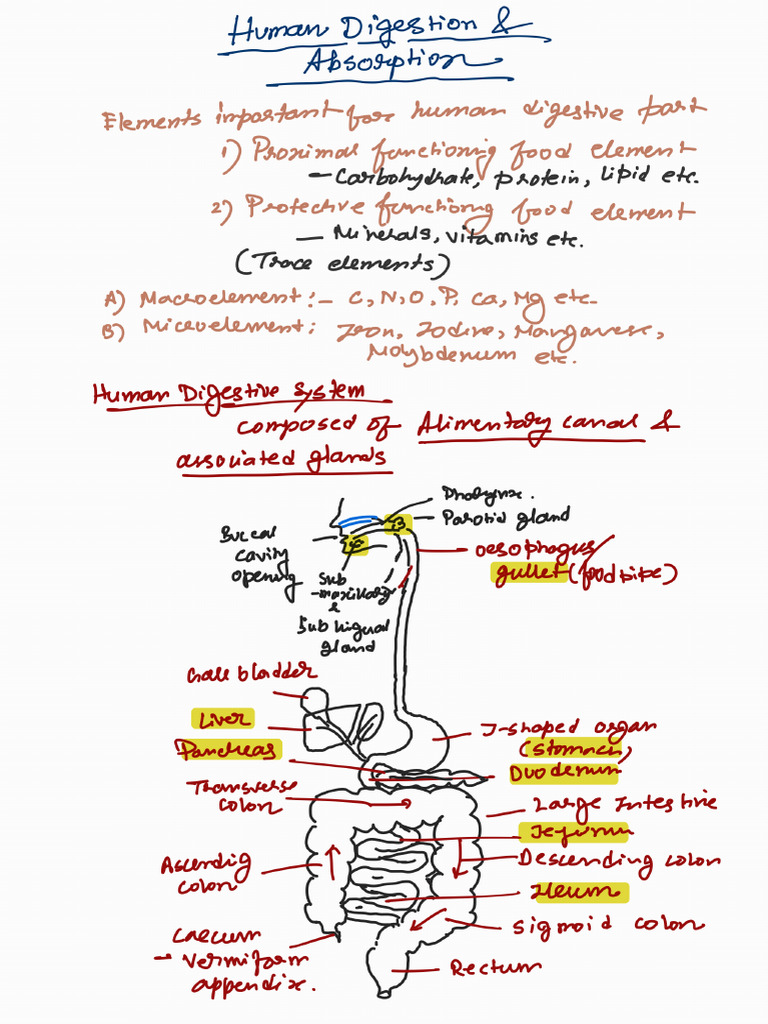 Human Digestion &
Absorption
Elements important for human digestive part
1) Proximal functioning food element
- Carbohydrate, protein, Lipid etc.
2) Protective functioning food element
- Minerals, vitamins etc.
(Trace elements)
A) Macroelement :- C, N, O, P, Ca, Mg etc-
B) Microelement : Iron, Iodine, Manganese,
Molybdenum etc.
Human Digestive System
composed of Alimentary canal &
associated glands
Pharynx.
Parotid gland
Buccal
cavity
opening
oesophagus/
gullet (foodpipe)
Sub
-maxillary
&
Sub lingual
gland
Gall bladder
Liver
Pancreas
J-shaped organ
(stomach)
Duodenum
Transverse
colon
Large Intestine
Jejunum
Descending colon
Ascending
colon
Ileum
Sigmoid colon
Caecum
- vermiform
appendix.
Rectum